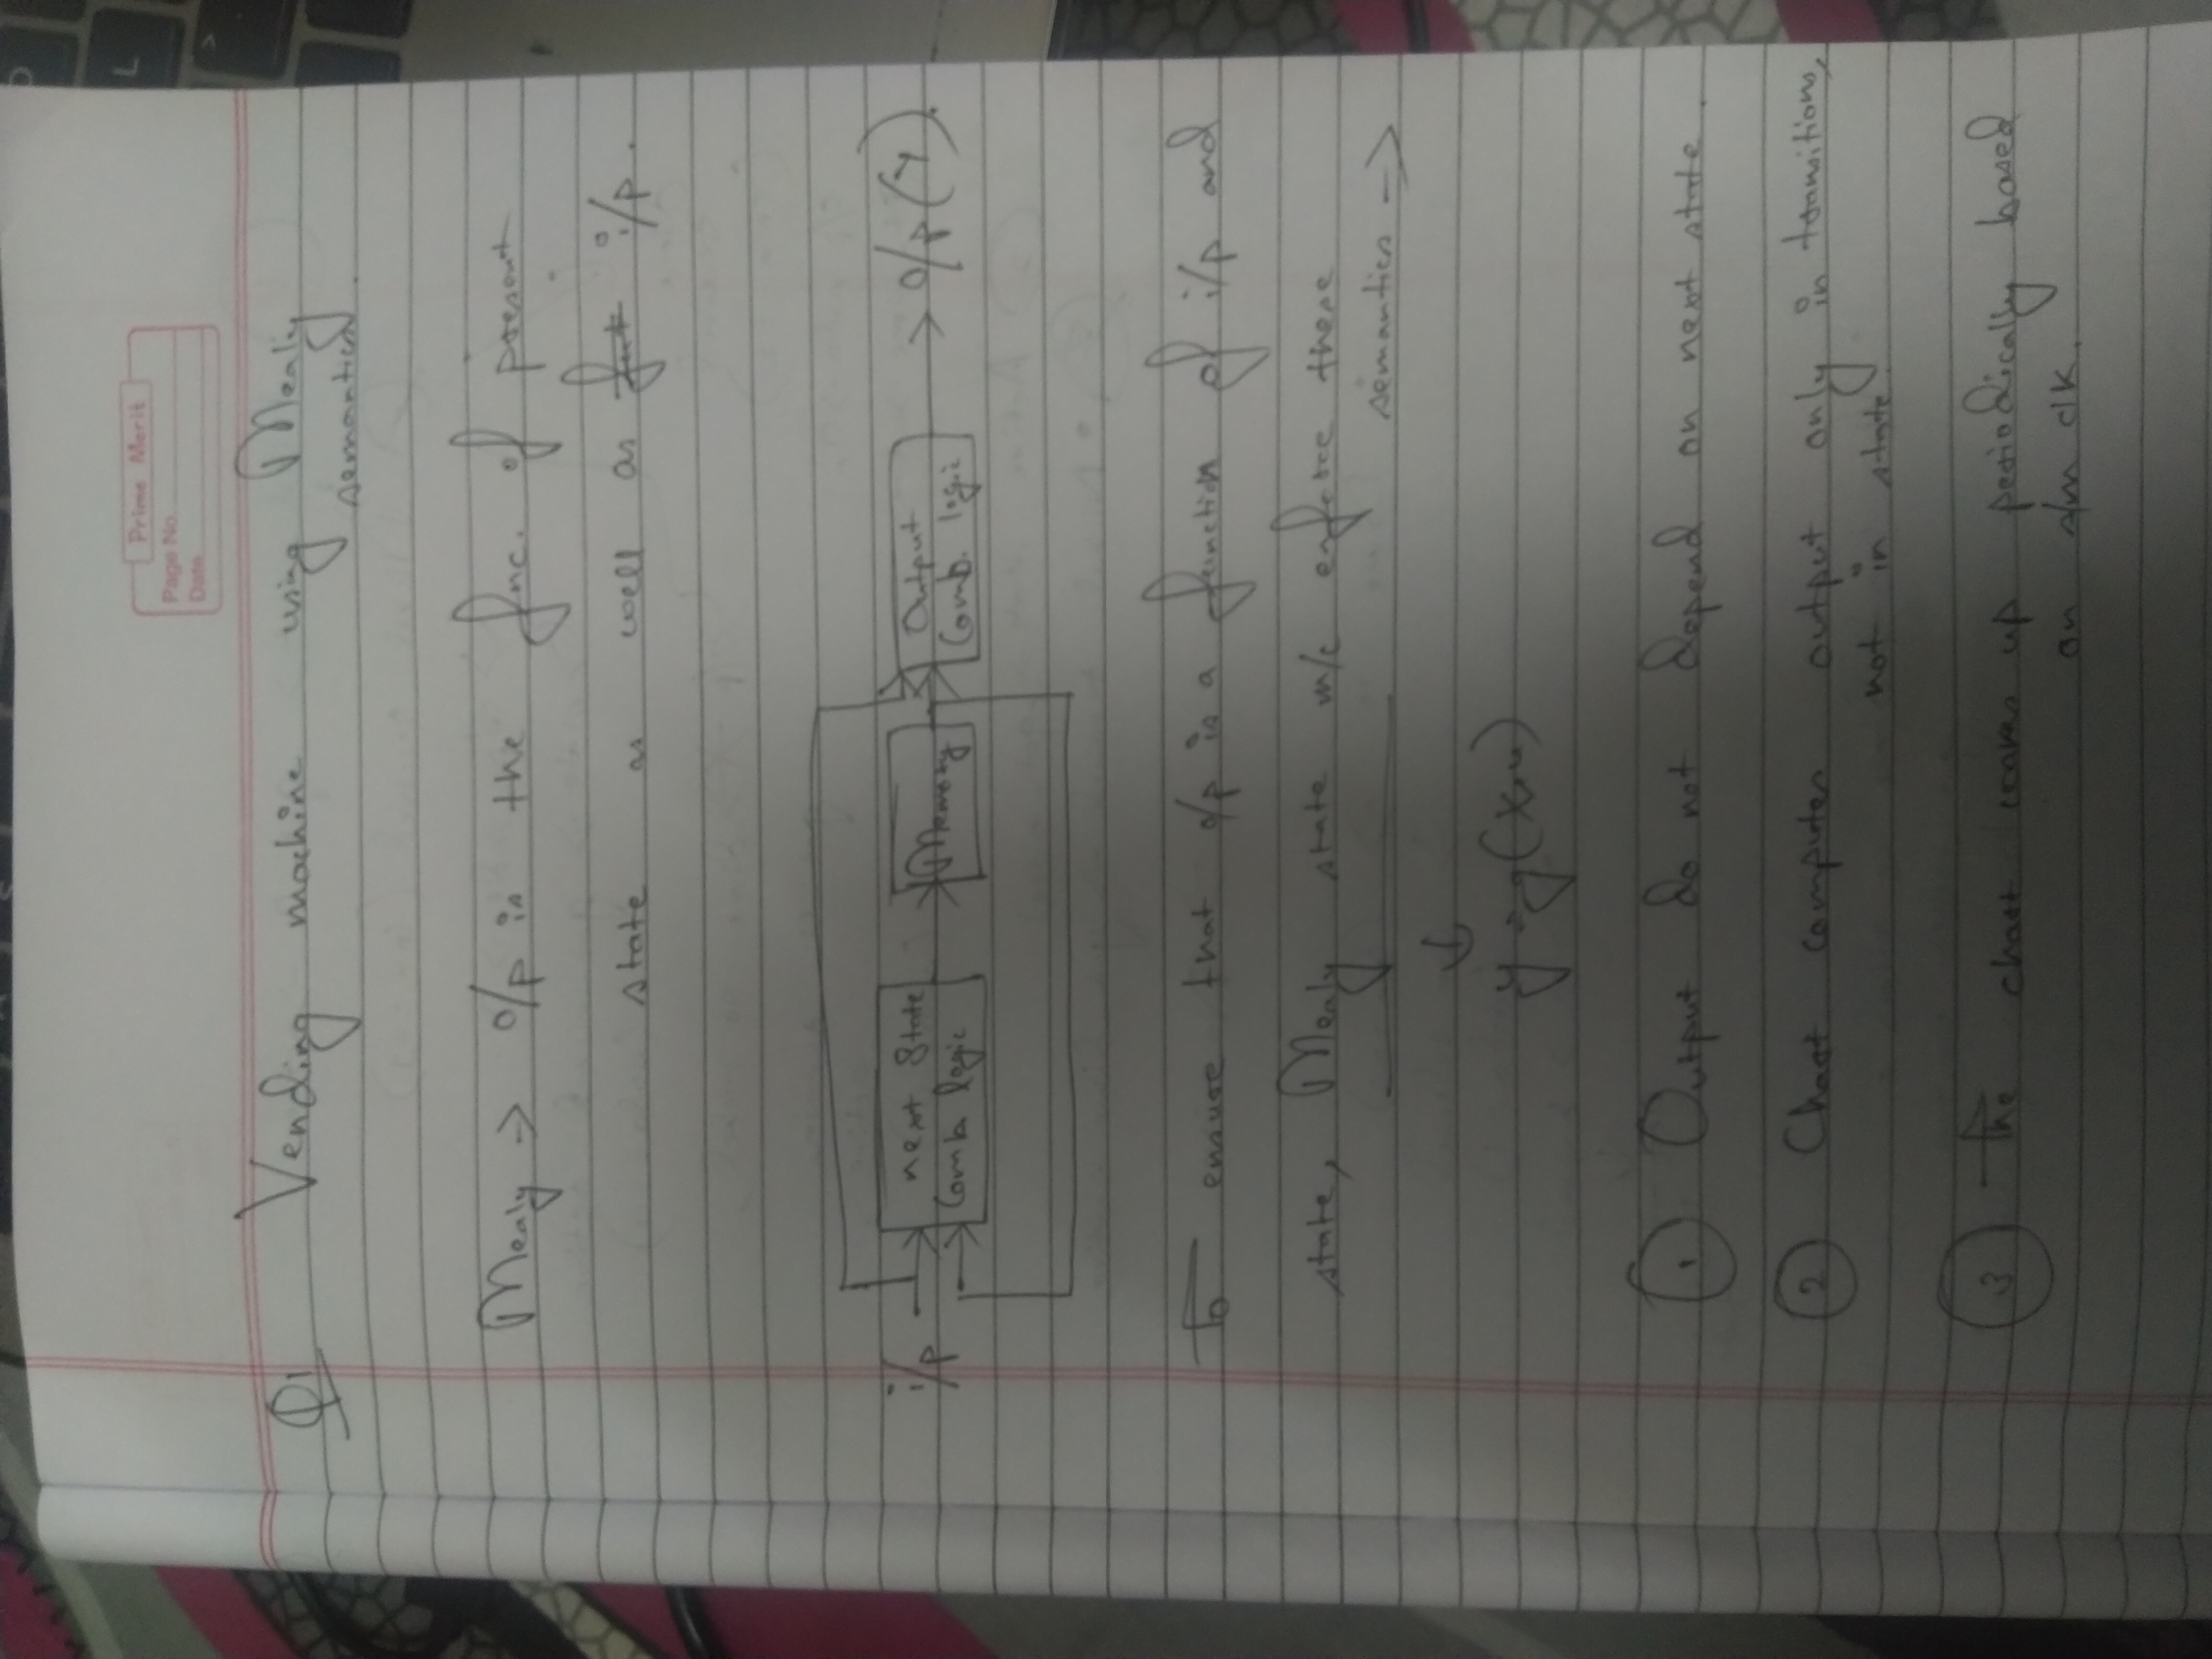 Prime Merit
Page No.
Date
Q1 Vending machine using Mealy
semantics.
Mealy → o/p is the func. of present
state as well as i/p.
i/p
next State
Comb. logic
Memory
Output
Comb. logic
o/p (Y).
To ensure that o/p is a function of i/p and
state, Mealy state m/c enforce these
semantics →
↓
y = g(x,u)
1 Output do not depend on next state.
2 Chart computes output only in transitions,
not in state.
3 The chart wakes up periodically based
on s/m clk.